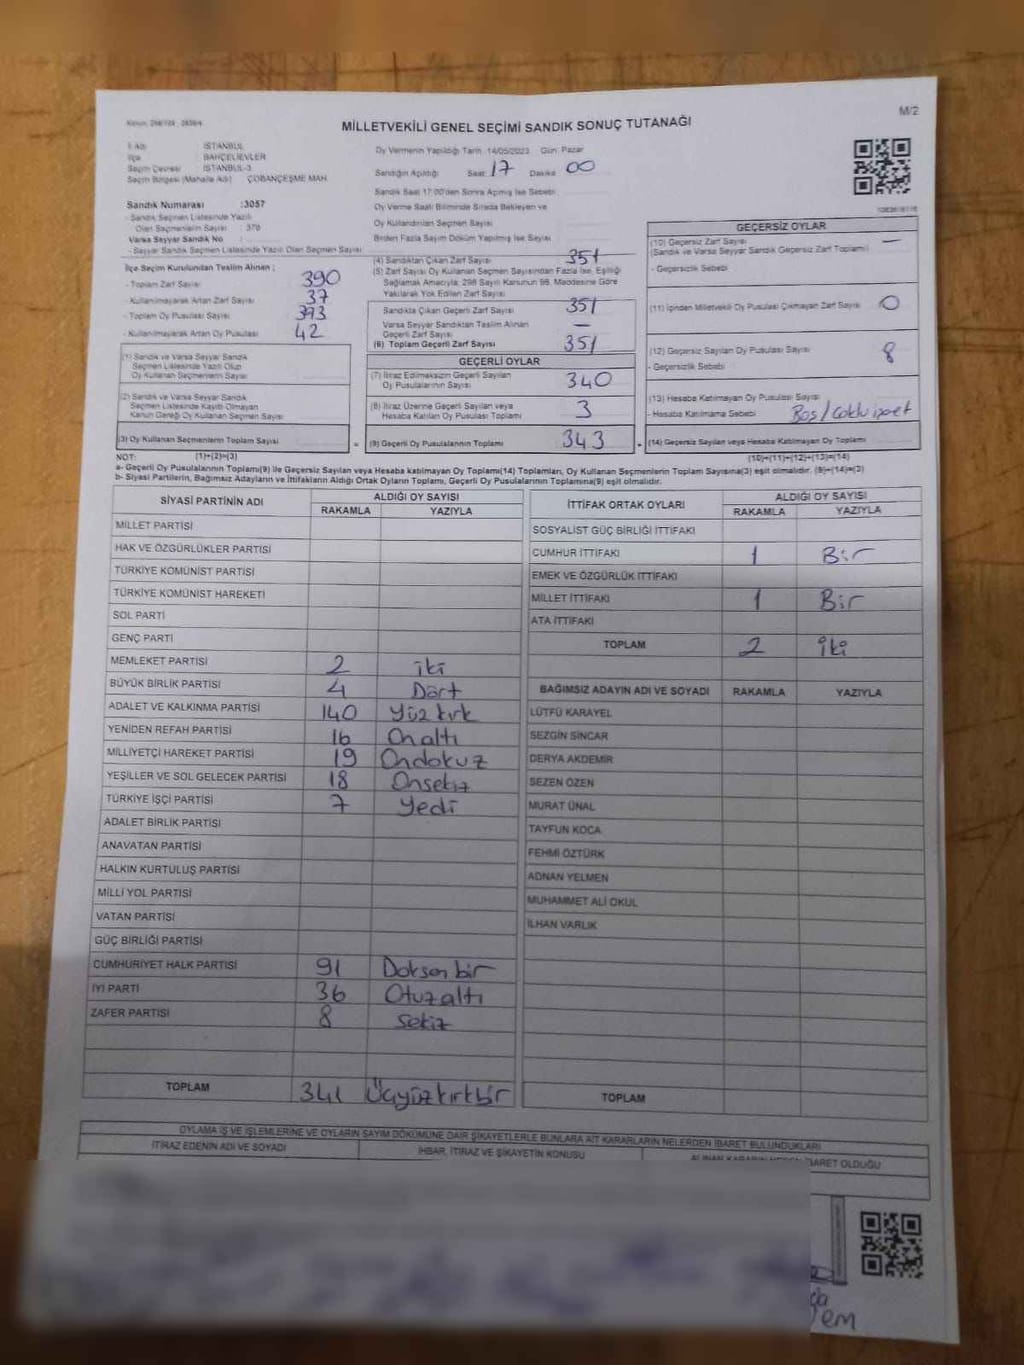 M/2
MİLLETVEKİLİ GENEL SEÇİMİ SANDIK SONUÇ TUTANAĞI
İl Adı : İSTANBUL
İlçe : BAHÇELİEVLER
Seçim Çevresi : İSTANBUL-3
Seçim Bölgesi (Mahalle Adı) : ÇOBANÇEŞME MAH.
Sandık Numarası :3057
- Sandık Seçmen Listesinde Yazılı
Olan Seçmenlerin Sayısı
Varsa Seyyar Sandık No
- Seyyar Sandık Seçmen Listesinde Yazılı Olan Seçmen Sayısı
Oy Vermenin Yapıldığı Tarih :14/05/2023 Gün: Pazar
Sandığın Açıldığı Saat: 17 Dakika 00
Sandık Saat 17:00'den Sonra Açılmış İse Sebebi
Oy Verme Saati Bitiminde Sırada Bekleyen ve
Oy Kullandırılan Seçmen Sayısı
Birden Fazla Sayım Döküm Yapılmış İse Sayısı
İlçe Seçim Kurulundan Teslim Alınan ;
- Toplam Zarf Sayısı 390
- Kullanılmayarak Artan Zarf Sayısı 37
- Toplam Oy Pusulası Sayısı 393
- Kullanılmayarak Artan Oy Pusulası 42
(1) Sandık ve Varsa Seyyar Sandık
Seçmen Listesinde Yazılı Olup
Oy Kullanan Seçmenlerin Sayısı
(2) Sandık ve Varsa Seyyar Sandık
Seçmen Listesinde Kayıtlı Olmayan
Kanun Gereği Oy Kullanan Seçmen Sayısı
(3) Oy Kullanan Seçmenlerin Toplam Sayısı
(4) Sandıktan Çıkan Zarf Sayısı 351
(5) Zarf Sayısı Oy Kullanan Seçmen Sayısından Fazla İse, Eşitliği
Sağlamak Amacıyla; 298 Sayılı Kanunun 98. Maddesine Göre
Yakılarak Yok Edilen Zarf Sayısı
Sandıkta Çıkan Geçerli Zarf Sayısı 351
Varsa Seyyar Sandıktan Teslim Alınan
Geçerli Zarf Sayısı —
(6) Toplam Geçerli Zarf Sayısı 351
GEÇERLİ OYLAR
(7) İtiraz Edilmeksizin Geçerli Sayılan
Oy Pusulalarının Sayısı 340
(8) İtiraz Üzerine Geçerli Sayılan veya
Hesaba Katılan Oy Pusulası Toplamı 3
= (9) Geçerli Oy Pusulalarının Toplamı 343 +
GEÇERSİZ OYLAR
(10) Geçersiz Zarf Sayısı —
(Sandık ve Varsa Seyyar Sandık Geçersiz Zarf Toplamı)
- Geçersizlik Sebebi
(11) İçinden Milletvekili Oy Pusulası Çıkmayan Zarf Sayısı 0
(12) Geçersiz Sayılan Oy Pusulası Sayısı 8
- Geçersizlik Sebebi
(13) Hesaba Katılmayan Oy Pusulası Sayısı
- Hesaba Katılmama Sebebi Boş/
(14) Geçersiz Sayılan veya Hesaba Katılmayan Oy Toplamı
NOT: (1)+(2)=(3) (10)+(11)+(12)+(13)=(14)
a- Geçerli Oy Pusulalarının Toplamı(9) ile Geçersiz Sayılan veya Hesaba katılmayan Oy Toplamı(14) Toplamları, Oy Kullanan Seçmenlerin Toplam Sayısına(3) eşit olmalıdır. (9)+(14)=(3)
b- Siyasi Partilerin, Bağımsız Adayların ve İttifakların Aldığı Ortak Oyların Toplamı, Geçerli Oy Pusulalarının Toplamına(9) eşit olmalıdır.
SİYASİ PARTİNİN ADI ALDIĞI OY SAYISI
RAKAMLA YAZIYLA
MİLLET PARTİSİ
HAK VE ÖZGÜRLÜKLER PARTİSİ
TÜRKİYE KOMÜNİST PARTİSİ
TÜRKİYE KOMÜNİST HAREKETİ
SOL PARTİ
GENÇ PARTİ
MEMLEKET PARTİSİ 2 iki
BÜYÜK BİRLİK PARTİSİ 4 Dört
ADALET VE KALKINMA PARTİSİ 140 Yüz kırk
YENİDEN REFAH PARTİSİ 16 On altı
MİLLİYETÇİ HAREKET PARTİSİ 19 Ondokuz
YEŞİLLER VE SOL GELECEK PARTİSİ 18 Onsekiz
TÜRKİYE İŞÇİ PARTİSİ 7 Yedi
ADALET BİRLİK PARTİSİ
ANAVATAN PARTİSİ
HALKIN KURTULUŞ PARTİSİ
MİLLİ YOL PARTİSİ
VATAN PARTİSİ
GÜÇ BİRLİĞİ PARTİSİ
CUMHURİYET HALK PARTİSİ 91 Doksan bir
İYİ PARTİ 36 Otuzaltı
ZAFER PARTİSİ 8 sekiz
TOPLAM 341 Üçyüzkırkbir
İTTİFAK ORTAK OYLARI ALDIĞI OY SAYISI
RAKAMLA YAZIYLA
SOSYALİST GÜÇ BİRLİĞİ İTTİFAKI
CUMHUR İTTİFAKI 1 Bir
EMEK VE ÖZGÜRLÜK İTTİFAKI
MİLLET İTTİFAKI 1 Bir
ATA İTTİFAKI
TOPLAM 2 iki
BAĞIMSIZ ADAYIN ADI VE SOYADI RAKAMLA YAZIYLA
LÜTFÜ KARAYEL
SEZGİN SİNCAR
DERYA AKDEMİR
SEZEN ÖZEN
MURAT ÜNAL
TAYFUN KOCA
FEHMİ ÖZTÜRK
ADNAN YELMEN
MUHAMMET ALİ OKUL
İLHAN VARLIK
TOPLAM
OYLAMA İŞ VE İŞLEMLERİNE VE OYLARIN SAYIM DÖKÜMÜNE DAİR ŞİKAYETLERLE BUNLARA AİT KARARLARIN NELERDEN İBARET BULUNDUKLARI
İTİRAZ EDENİN ADI VE SOYADI İHBAR, İTİRAZ VE ŞİKAYETİN KONUSU